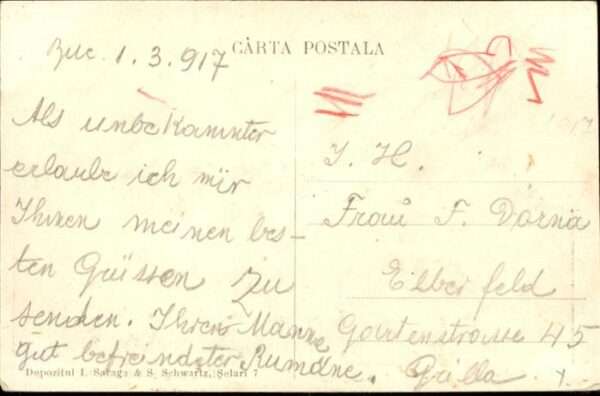 CÀRTA POSTALA
Buc. 1.3.917
Als unbekannter
erlaube ich mir
Ihnen meinen bes-
ten Grüssen zu
senden. Ihren Manne
gut befreindeter Rumäne.
I. H.
Frau F. Dorna
Elberfeld
Gartenstrasse 45
Grilla
Depozitul I. Saraga & S. Schwartz, Selari 7